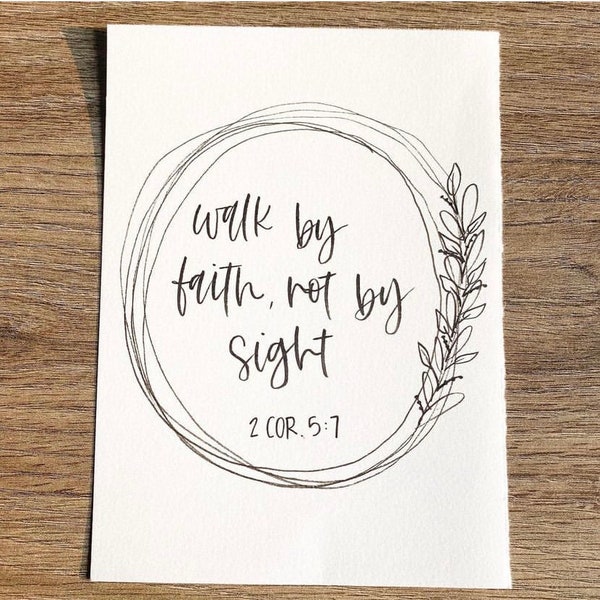 walk by
faith, not by
sight
2 COR. 5:7